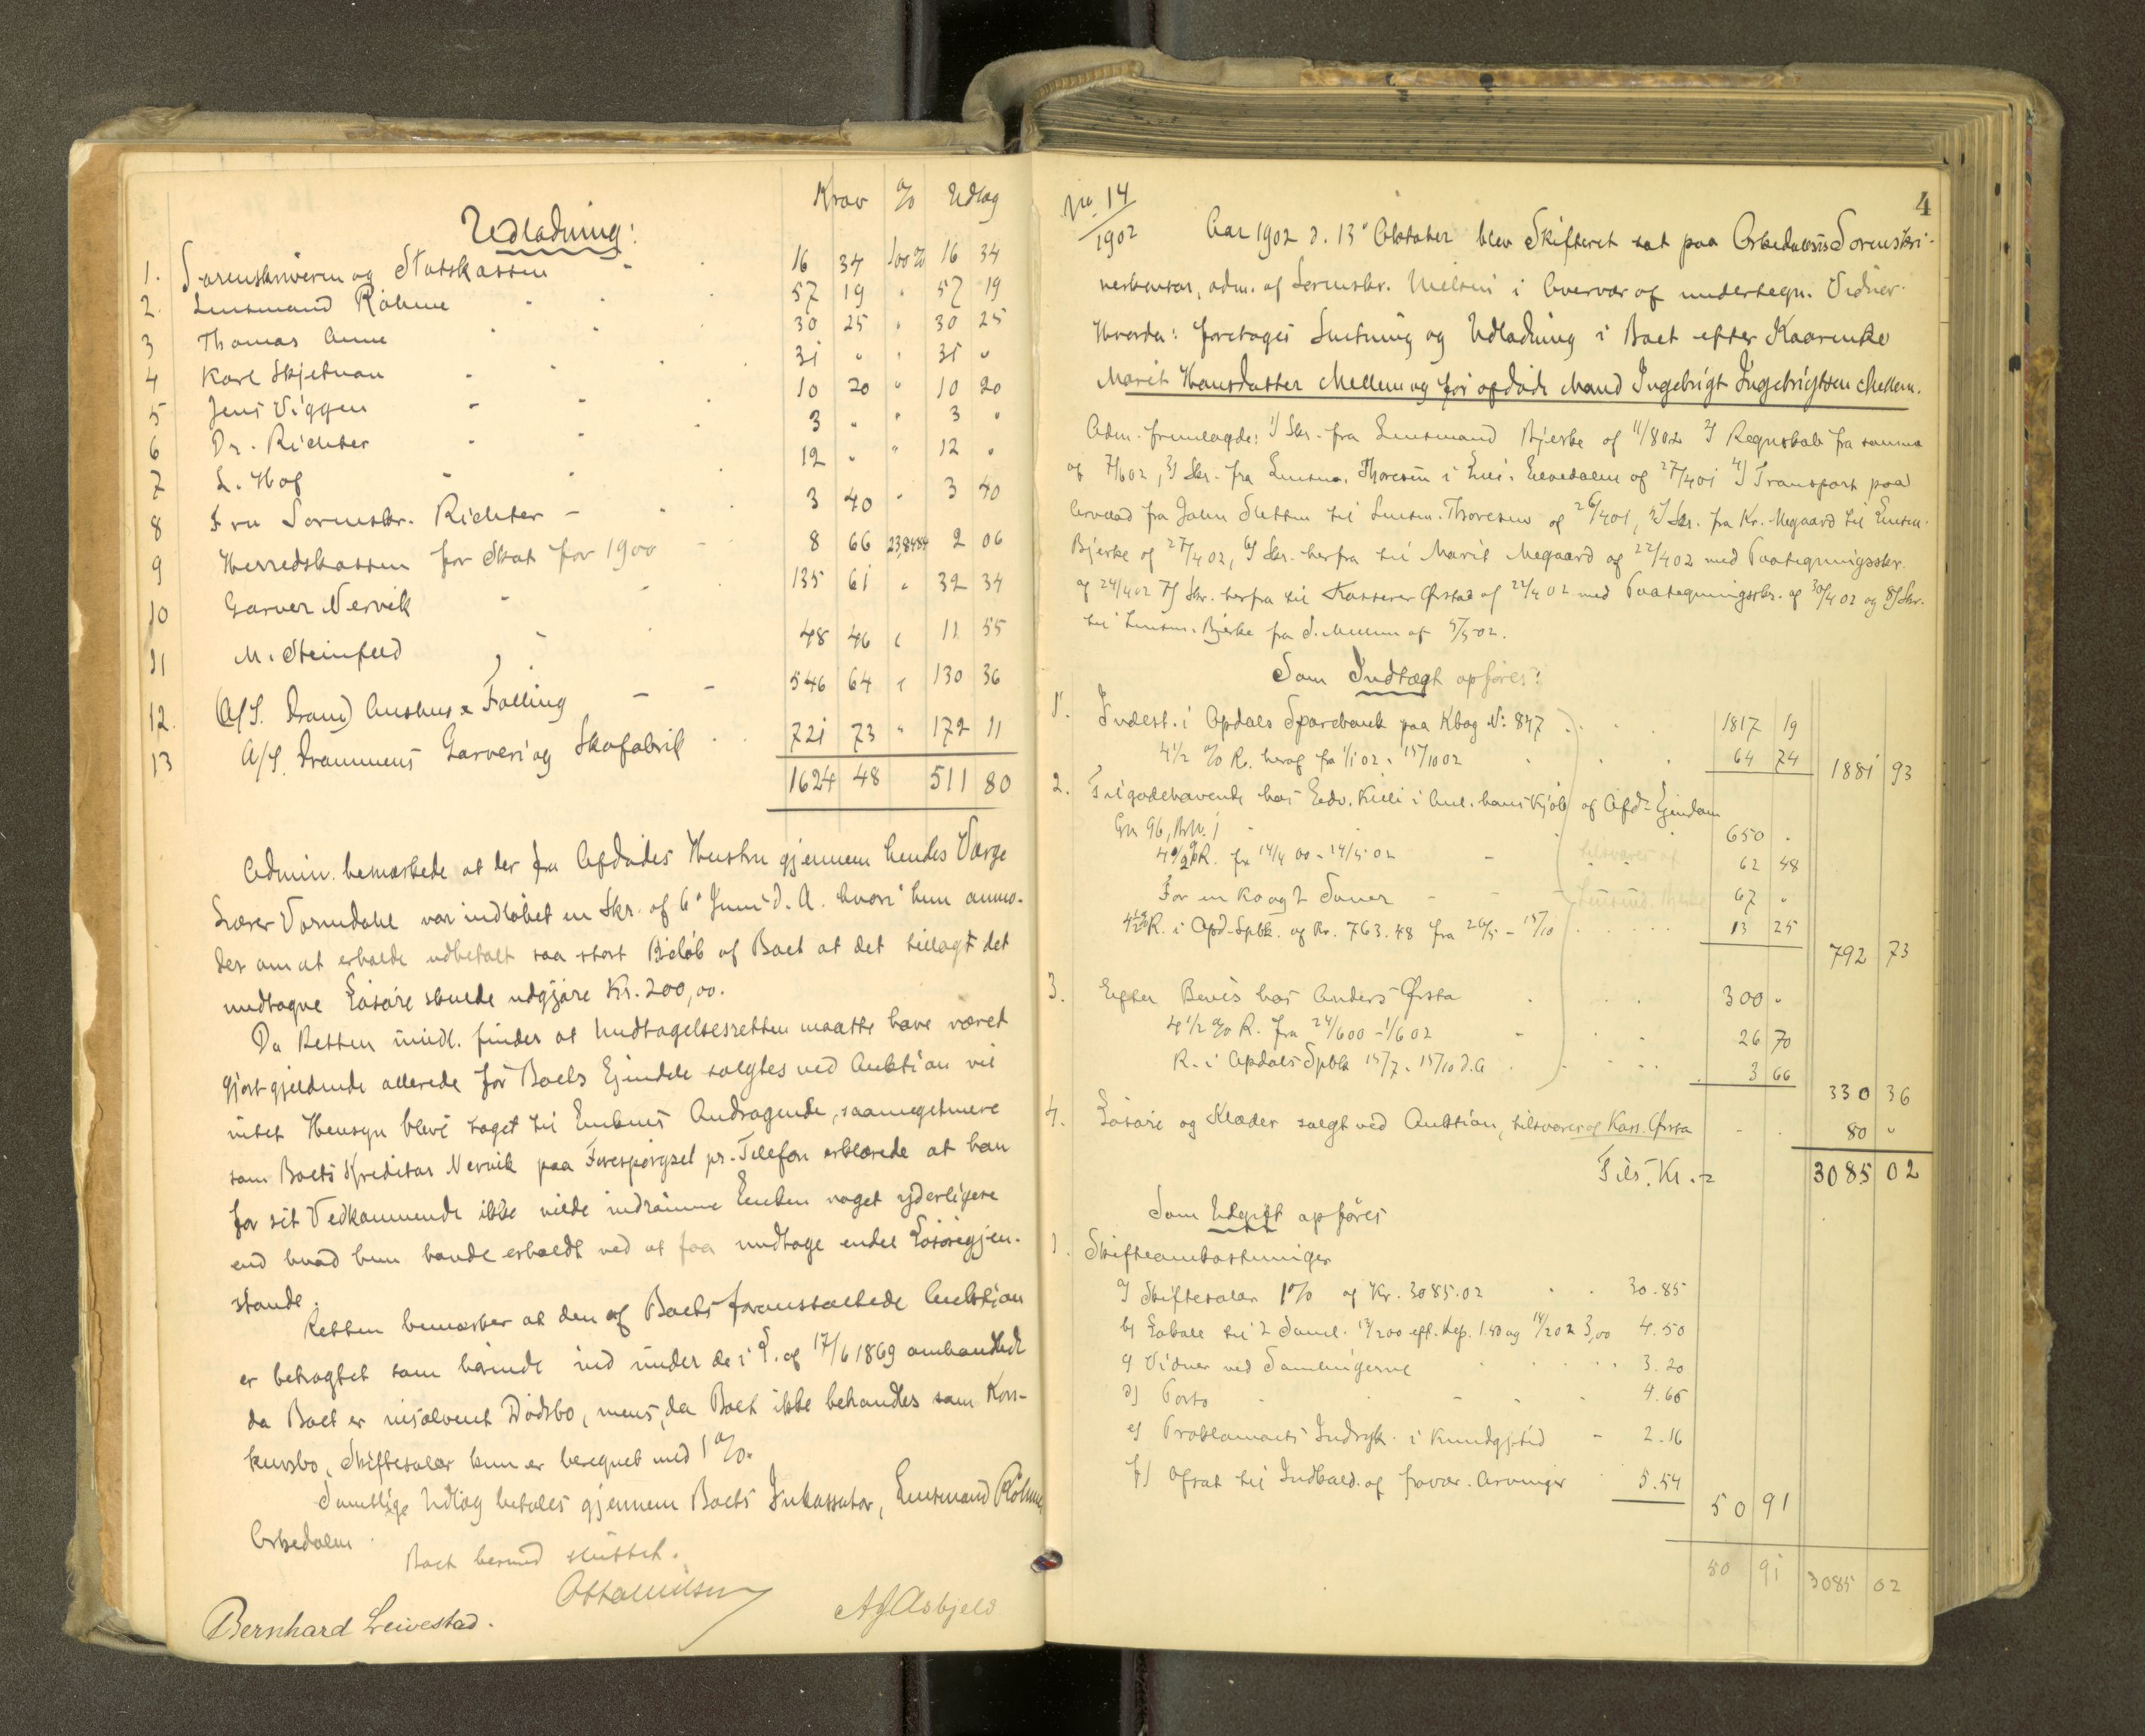 Krav % Udlæg
Udlodning:
1. Sorenskriveren og Statskassen - 16 34 100% 16 34
2. Lensmand Röhme 57 19 " 57 19
3 Thomas Aune 30 25 " 30 25
4 Karl Skjetnan 31 " " 31 "
5 Jens Viggen 10 20 " 10 20
6 Dr. Richter 3 " " 3 "
7 L. Hof 12 " " 12 "
8 Fru Sorenskr. Richter - 3 40 " 3 40
9 Herredskassen for Skat for 1900 8 66 23,8484 2 06
10 Garver Nervik 135 61 " 32 34
11 M. Steinfeld 48 46 " 11 55
12. (A/S. Dram) Aushus & Falling 546 64 " 130 36
13 A/S. Drammens Garveri og Skofabrik 721 73 " 172 11
1624 48 511 80
Admin. bemærkede at der fra Afdødes Hustru gjennem hendes Værge
Lærer Vorndahl var indløbet en Skr. af 6' Juni d. A. hvori hun anmo-
der om at erholde udbetalt saa stort Beløb af Boet at det tillagt det
undtagne Løsøre skulde udgjøre Kr. 200,00.
Da Retten imidl. finder at Undtagelsesretten maatte have været
gjort gjeldende allerede før Boets Eiendele solgtes ved Auktion vil
intet Hensyn blive taget til Enkens Andragende, saameget mere
som Boets Kreditor Nervik paa Forespørgsel pr. Telefon erklærede at han
for sit Vedkommende ikke vilde indrømme Enken noget yderligere
end hvad hun havde erholdt ved at faa undtage endel Løsøregjen-
stande.
Retten bemærker at den af Boets foranstaltede Auktion
er betragtet som hørende ind under de i L. af 17/6 1869 omhandlede
da Boet er insolvent Dødsbo, mens, da Boet ikke behandles som Kon-
kursbo, Skiftesalær kun er beregnet med 1 %.
Samtlige Udlæg betales gjennem Boets Inkassator, Lensmand Röhme,
Orkedalen.
Boet hermed sluttet.
Otto Nielsen
Bernhard Leivestad. A J Asbjeld
4
No. 14/1902
Aar 1902 d. 13' Oktober blev Skifteret sat paa Orkedalens Sorenskri-
verkontor, adm. af Sorenskr. Nielsen i Overvær af undertegn. Vidner.
Hvorda: foretoges Slutning og Udlodning i Boet efter Kaarenke
Marit Hansdatter Mellem og før afdøde Mand Ingebrigt Ingebrigtsen Mellem.
Adm. fremlagde: 1) Skr. fra Lensmand Bjerke af 11/8 02 2) Regnskab fra samme
af 7/6 02, 3) Skr. fra Lensm. Thoresen i Lille Elvedalen af 27/4 01 4) Transport paa
Arvelod fra John Sletten til Lensm. Thoresen af 26/4 01, 5) Skr. fra Kr. Megaard til Lensm.
Bjerke af 27/4 02, 6) Skr. herfra til Marit Megaard af 22/4 02 med Paategningsskr.
af 24/4 02 7) Skr. herfra til Kasserer Ørstad af 22/4 02 med Paategningsskr. af 30/4 02 og 8) Skr.
til Lensm. Bjerke fra S. Mellem af 5/5 02.
Som Indtægt opføres:
1. Indest. i Opdals Sparebank paa Kbog No. 847 1817 19
4 1/2 % R. heraf fra 1/1 02 - 15/10 02 64 74 1881 93
2. Tilgodehavende hos Edv. Killi i Anl. hans Kjøb af Afd. Eiendom
Gn 96, Bn. 1 650 "
4 1/2 % R. fra 14/4 00 - 14/5 02 tilsvares af 62 48
For en Ko og 2 Sauer Lensmd. Bjerke 67 "
4 1/2 % R. i Opd. Spbk. af Kr. 763.48 fra 26/5 - 15/10 13 25
792 73
3. Efter Bevis hos Anders Ørsta 300 "
4 1/2 % R. fra 24/6 00 - 1/6 02 26 70
R. i Opdals Spbk 15/7 - 15/10 d.A 3 66
330 36
4. Løsøre og Klæder solgt ved Auktion, tilsvares af Kass. Ørsta 80 "
Tils. Kr. = 3085 02
Som Udgift opføres
1. Skifteomkostninger
a) Skiftesalær 1% af Kr. 3085.02 30.85
b) Lokale til 2 Saml. 13/2 00 eft. Rep. 1.50 og 14/2 02 3,00 4.50
c) Vidner ved Samlingerne 3.20
d) Porto 4.66
e) Proklamaets Indryk. i Kundgjtid - 2.16
f) Afsat til Indkald. af fravær. Arvinger 5.54
50 91
50 91 3085 02